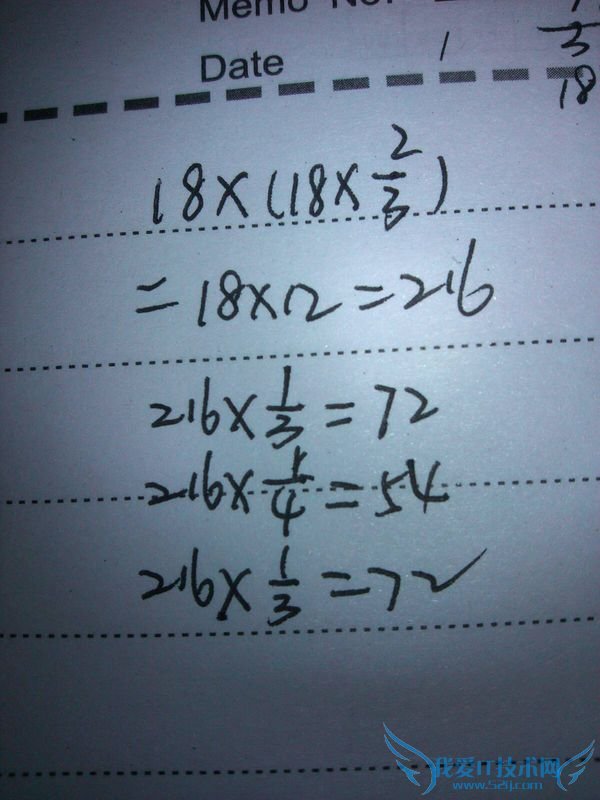 Memo No.
Date
3
18
18×(18×2/3)
=18×12=216
216×1/3=72
216×1/4=54
216×1/3=72
我爱IT技术网
www.52ij.com